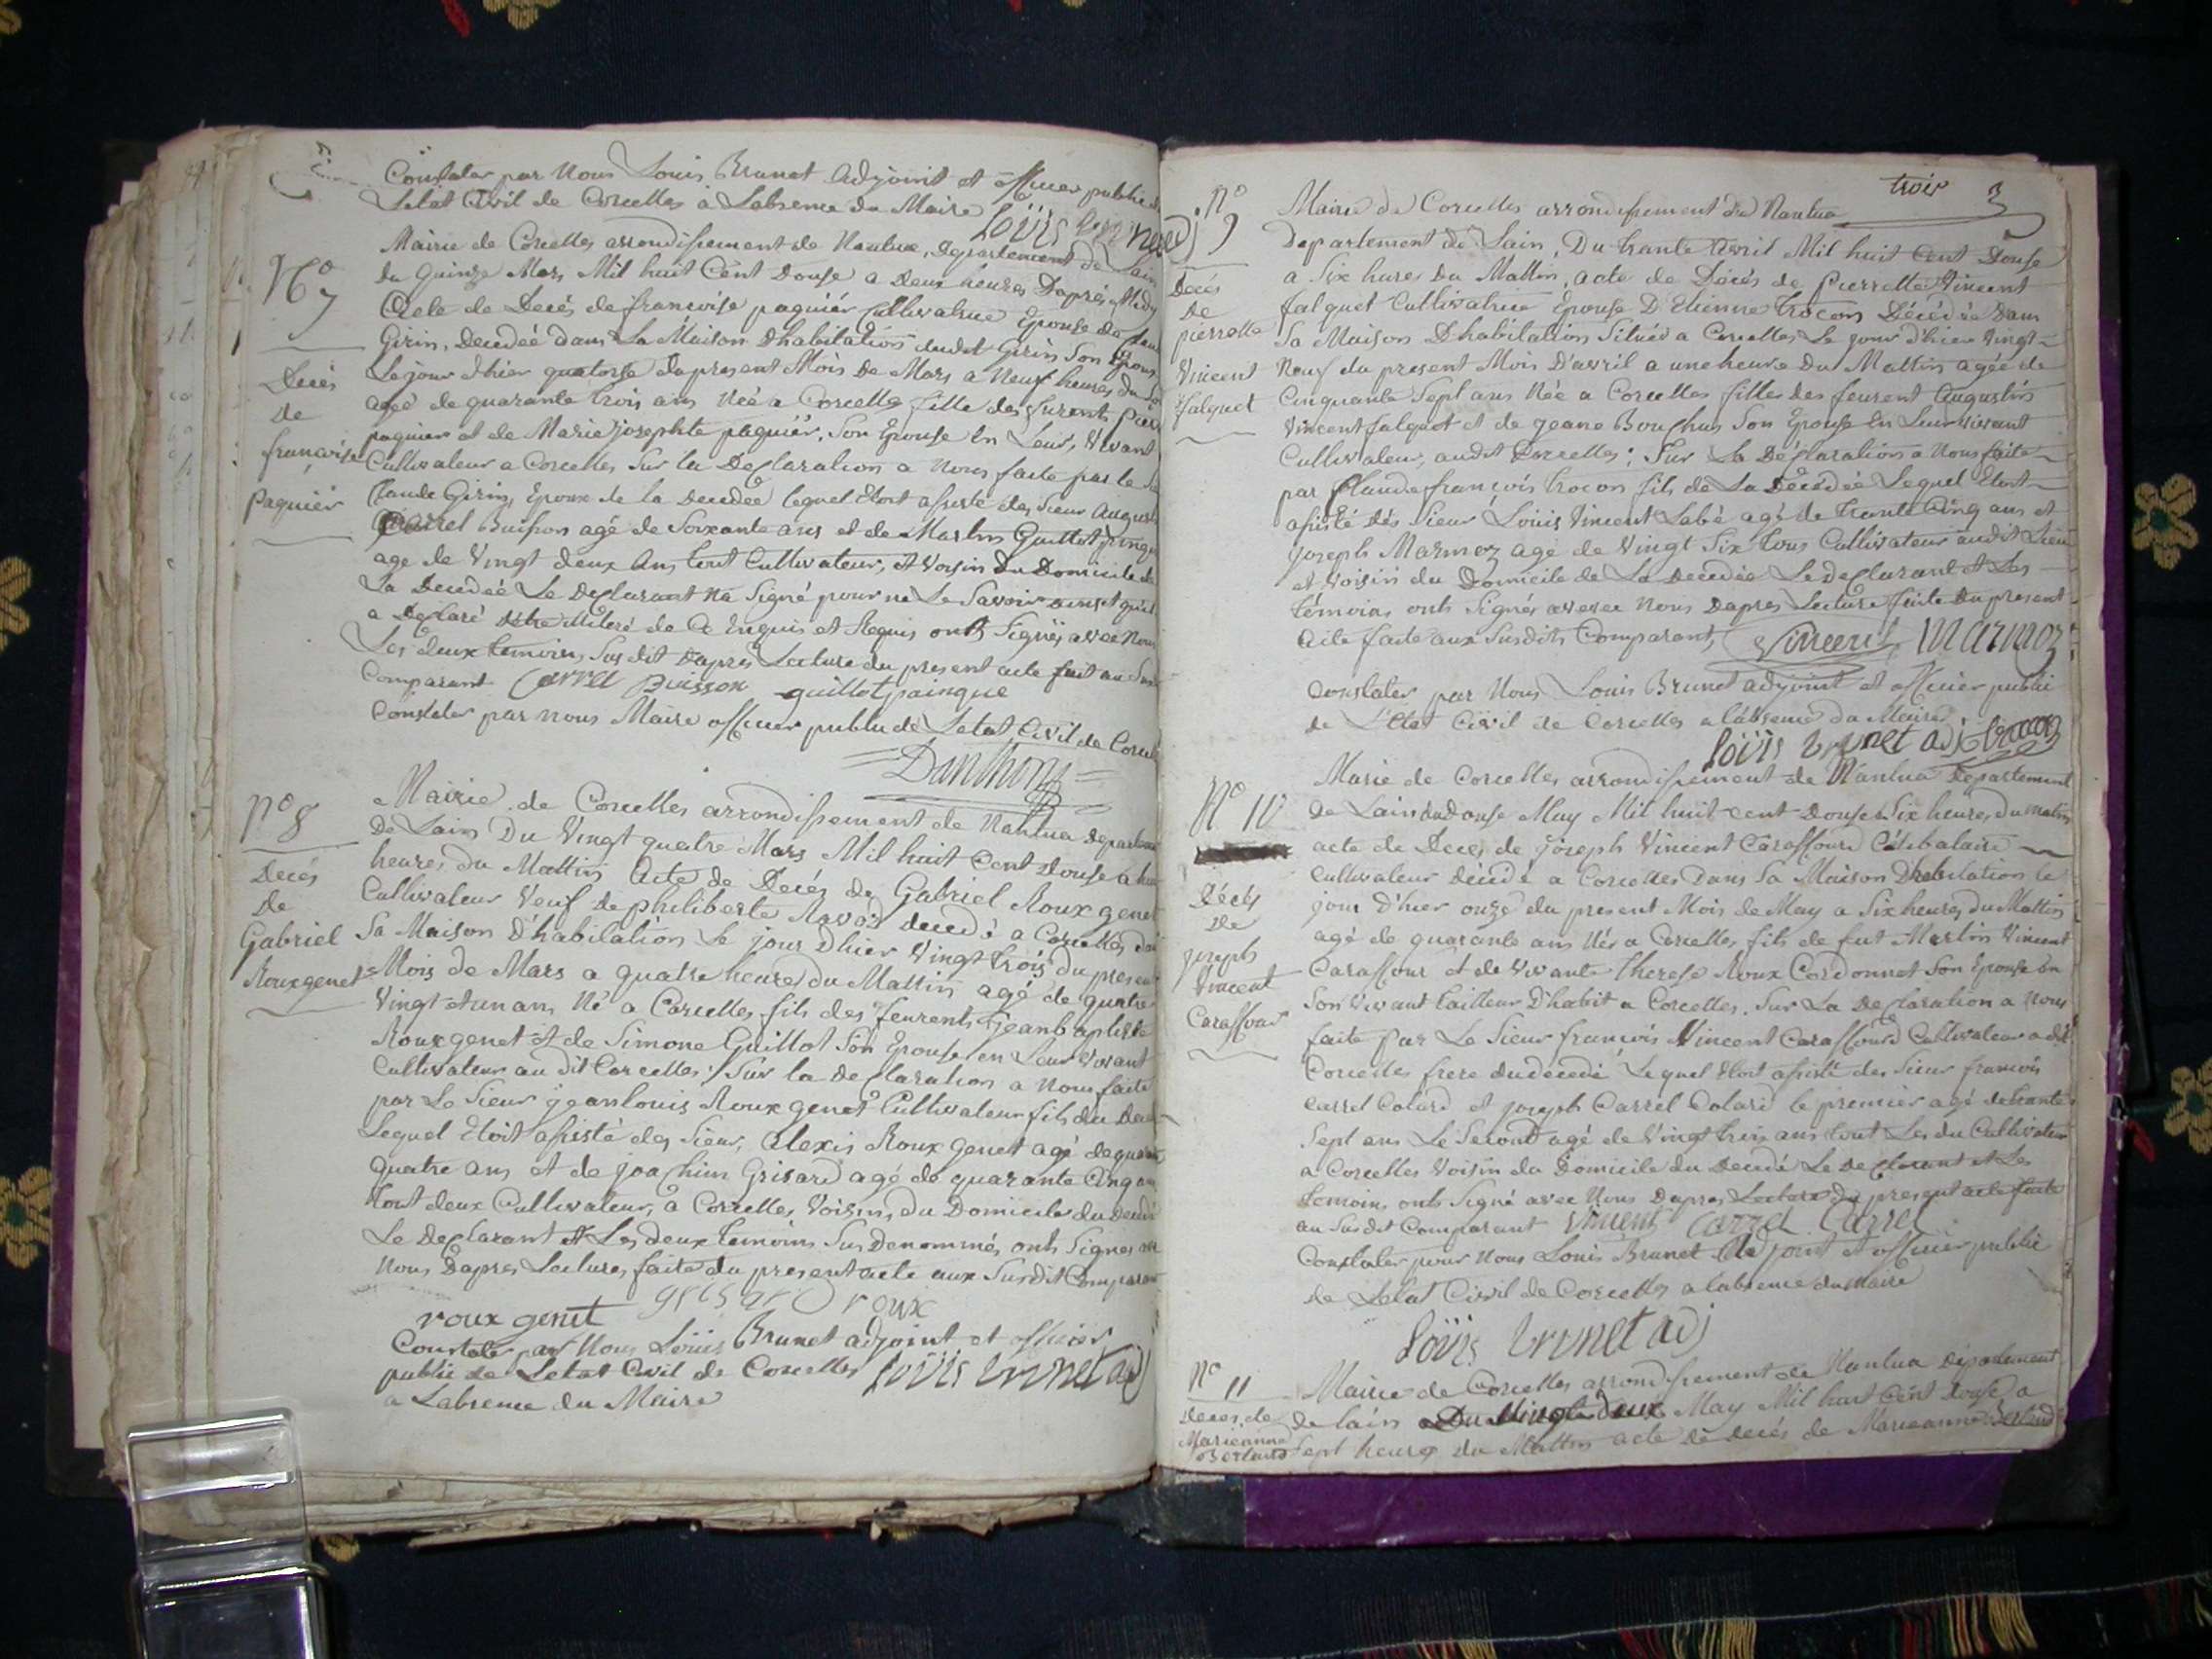 Constater par Nous Louis Brunet Adjoint et officier public de
Letat Civil de Corcelles a Labsence du Maire Loüis brunet adj
Mairie de Corcelles arrondissement de Nantua, departement de Lain
N° 7
du quinze Mars Mil huit Cent Douse a Deux heures Daprés Midy
Acte de Decés de francoise paquiér Cultivatrice Epouse de
Girin, Decedeé dans La Maison Dhabitation dudit Girin Son Epoux
Le jour d'hier quatorse du present Mois De Mars a Neuf heures du
ageé de quarante trois ans Neé a Corcelles fille des furent
paquier et de Marie josephte paquiér, Son Epouse en Leur Vivant
Cultivateur a Corcelles Sur la Declaration a Nous faite par le
Claude Girin, Epoux de la Decedeé lequel Etoit asisté des Sieur
Carrel Buisson agé de Soixante ans et de Martin Guillot
age de Vingt deux Ans tout Cultivateur, et Voisin du Domicile de
La Decedeé Le Declarant Na Signé pour ne Le Savoir ainsi quil
a Declaré de Ce Enquis et Requis ont Signés avec Nous
Les deux temoins Sus dit Dapres Lecture du present acte fait au
Comparant Carrel Buisson guillot painque
Constater par nous Maire officier public de Letat Civil de
Danthony
Decés
De
francoise
Paquiér
N° 8
Mairie de Corcelles arrondissement de Nantua
De Lain Du Vingt quatre Mars Mil huit Cent Douse a
heures du Mattin Acte de Decés de Gabriel Roux genet
Cultivateur Veuf de philiberte decedé a Corcelles
Sa Maison D'habitation Le jour Dhier Vingt trois du present
Mois de Mars a quatre heure du Mattin agé de quatre
Vingt et un ans Né a Corcelles fils des feurent, jeanbaptiste
Roux genet et de Simone Guillot Son Epouse en Leur Vivant
Cultivateur au dit Corcelles / Sur la Declaration a Nous faite
par Le Sieur jeanlouis Roux genet Cultivateur fils du
Lequel Etoit asisté des Sieur, Alexis Roux genet agé de
quatre ans et de joachim Grisard agé de quarante Cinq ans
tout deux Cultivateur, a Corcelles Voisin, du Domicile du
Le Declarant et Les deux temoins Sus Denommés ont Signes
Nous Dapres Lecture, faite du present acte aux Susdit Comparant
roux genet grisard roux
Constater par Nous Loüis Brunet adjoint et officier
public de Letat Civil de Corcelles Loüis brunet adj
a Labsence du Maire
Decés
De
Gabriel
Roux genet
trois 3
N° 9
Mairie de Corcelles arrondissement de Nantua
departement de Lain, Du trante Avril Mil huit Cent Douse
a Six hures Du Mattin, acte de Décés de Pierrette Vincent
falquet Cultivatrice Epouse D'Etienne trocon Décédée dans
Sa Maison D'habitation Située a Corcelles Le jour d'hier Vingt
Neuf du present Mois D'avril a une heure Du Mattin ageé de
Cinquante Sept ans Née a Corcelles filles des feurent Augustin
Vincent falquet et de jeane Bouchus Son Epouse En Leur vivant
Cultivateur, audit Corcelles ; Sur La Déclaration a Nous faite
par Claude francois trocon fils de La Décédée Lequel Etoit
asisté dés Sieur Loüis Vincent Labé agé de trante Cinq ans et
joseph Marmoz age de Vingt Six tous Cultivateur audit Lieu
et Voisin du Domicile de La Decedée Le declarant et Les
témoins onts Signés avec Nous Dapres Lecture faite du present
acte faite aux Susdits Comparant, Vincent, Marmoz
Constater par Nous Louis Brunet adjoint et officier public
de L'Etat Civil de Corcelles a labsence du Maire
Loüis brunet adj trocon
Decés
De
pierrette
Vincent
falquet
N° 10
Marie de Corcelles arrondissement de Nantua Departement
de Lain du douse May Mil huit cent Douse a Six heure, du matin
acte de Deces de joseph Vincent Carassoud Célebataire
Cultivateur décidé a Corcelles Dans Sa Maison Dhabitation le
jour D'hier onze du present Mois de May a Six heures du Mattin
agé de quarante ans Née a Corcelles fils de fut Martin Vincent
Carassour et de Vivante Therese Roux Cordonnet Son Epouse en
Son Vivant tailleur D'habit a Corcelles. Sur La Declaration a Nous
faite par Le Sieur francois Vincent Carassoud Cultivateur a dit
Corcelles frere du decedé Lequel Etoit asisté des Sieur francois
Carrel Colard et joseph Carrel Colard le premier agé de trante
Sept ans Le Second agé de Vingt trois ans tout Les du Cultivateur
a Corcelles Voisin du Domicile du Decedé Le Declarant et Les
temoins onts Signé avec Nous Dapres Lecture du present acte faite
au Susdit Comparant Vincent Carrel Carrel
Constater pour Nous Louis Brunet Adjoint et officier public
de Letat Civil de Corcelles a labsence du Maire
Loüis brunet adj
Décés
De
joseph
Vincent
Carassoud
N° 11
Deces de
Marieanne
Berlaud
Mairie de Corcelles arrondissement de Nantua Departement
de lain Du Vingt deux May Mil huit Cent Douse a
Sept heures du Mattin acte de decés de Marieanne Berlaud